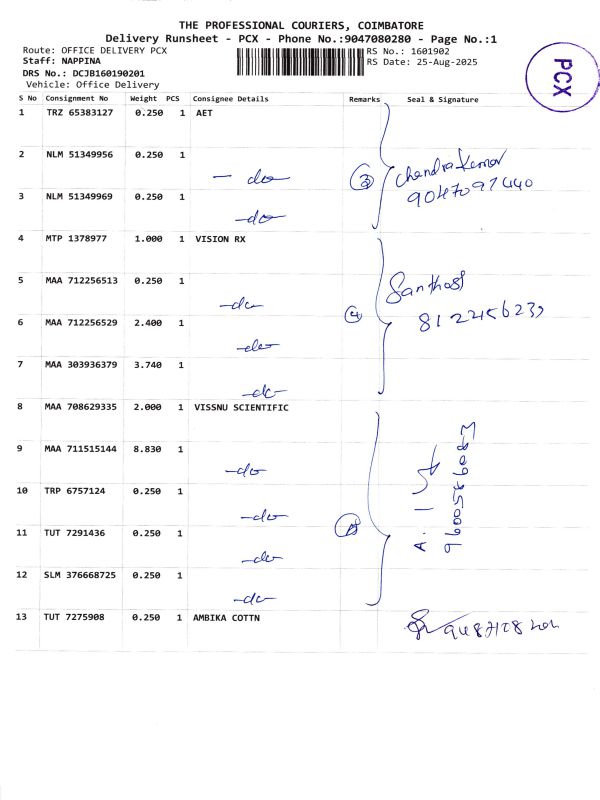 THE PROFESSIONAL COURIERS, COIMBATORE
Delivery Runsheet - PCX - Phone No.:9047080280 - Page No.:1
Route: OFFICE DELIVERY PCX
RS No.: 1601902
Staff: NAPPINA
RS Date: 25-Aug-2025
DRS No.: DCJB160190201
Vehicle: Office Delivery
PCX
S No Consignment No Weight PCS Consignee Details Remarks Seal & Signature
1 TRZ 65383127 0.250 1 AET
2 NLM 51349956 0.250 1
- do
3 Chandrakumar
3 NLM 51349969 0.250 1
-do
4 MTP 1378977 1.000 1 VISION RX
5 MAA 712256513 0.250 1
-do
4 Santhosh
6 MAA 712256529 2.400 1
-do
7 MAA 303936379 3.740 1
-do
8 MAA 708629335 2.000 1 VISSNU SCIENTIFIC
9 MAA 711515144 8.830 1
-do
10 TRP 6757124 0.250 1
-do
11 TUT 7291436 0.250 1
-do
12 SLM 376668725 0.250 1
-do
13 TUT 7275908 0.250 1 AMBIKA COTTN